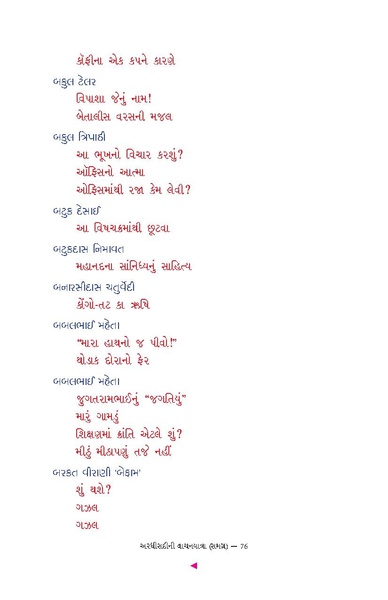 કૉફીના એક કપને કારણે
બકુલ ટેલર
વિપાશા જેનું નામ!
બેતાલીસ વરસની મજલ
બકુલ ત્રિપાઠી
આ ભૂખનો વિચાર કરશું?
ઑફિસનો આત્મા
ઓફિસમાંથી રજા કેમ લેવી?
બટુક દેસાઈ
આ વિષચક્રમાંથી છૂટવા
બટુકદાસ નિમાવત
મહાનદના સાંનિધ્યનું સાહિત્ય
બનારસીદાસ ચતુર્વેદી
કોંગો-તટ કા ઋષિ
બબલભાઈ મહેતા
“મારા હાથનો જ પીવો!”
થોડાક દોરાનો ફેર
બબલભાઈ મહેતા
જુગતરામભાઈનું “જગતિયું”
મારું ગામડું
શિક્ષણમાં ક્રાંતિ એટલે શું?
મીઠું મીઠાપણું તજે નહીં
બરકત વીરાણી 'બેફામ'
શું થશે?
ગઝલ
ગઝલ
અરધીસદીની વાચનયાત્રા (સમગ્ર) — 76